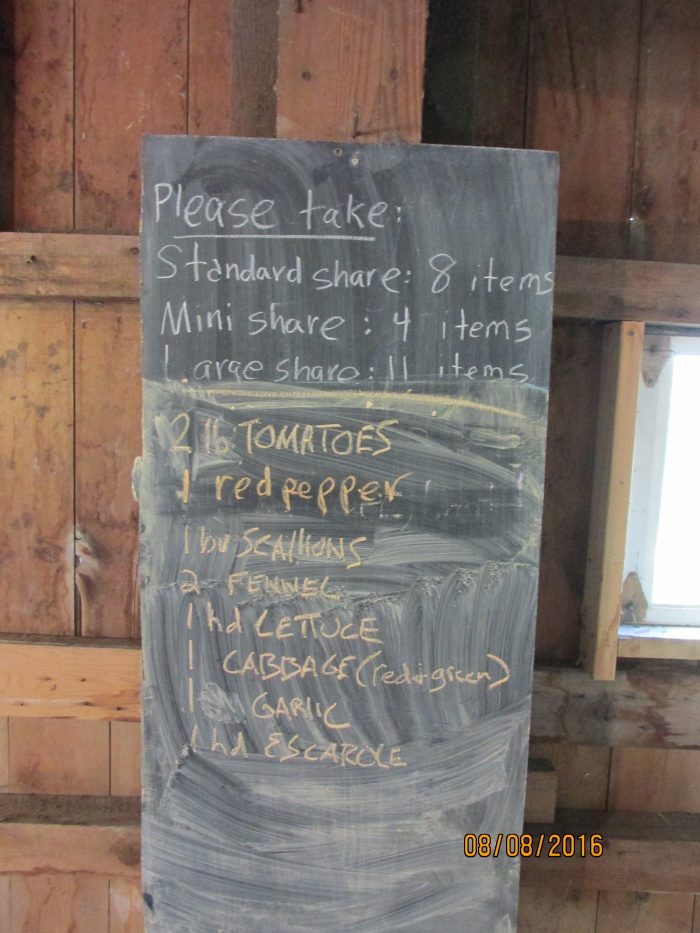 Please take:
Standard share: 8 items
Mini share: 4 items
Large share: 11 items
2 lb TOMATOES
1 red pepper
1 bu SCAllIONS
2 FENNEL
1 hd LETTUCE
1 CABBAGE (red + green)
1 GARLIC
1 hd ESCAROLE
08/08/2016